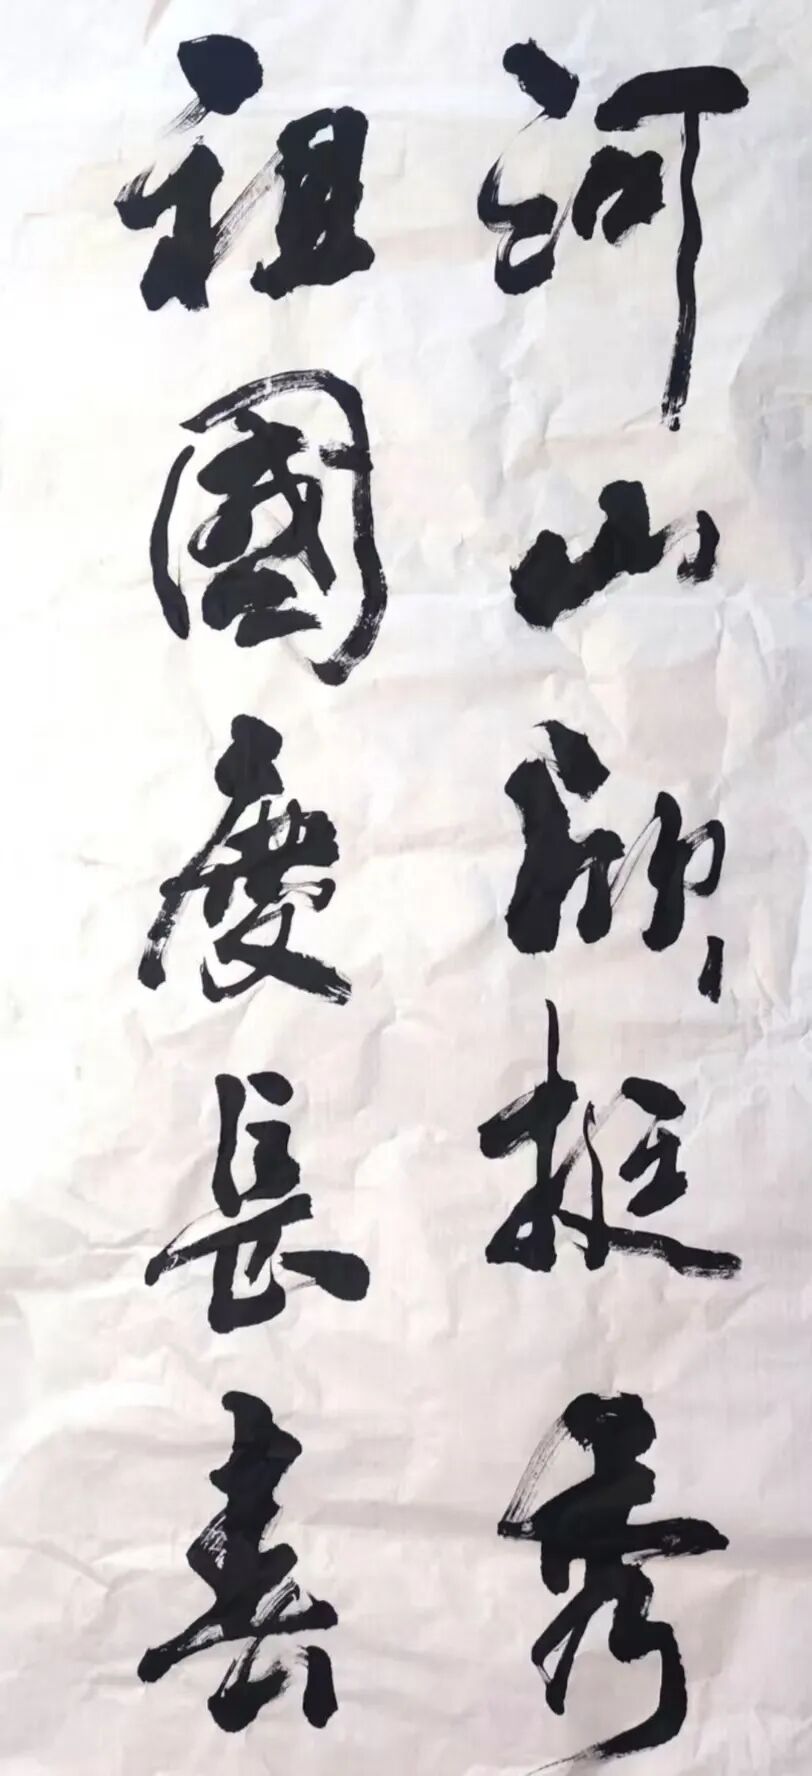 河山欣挺秀
祖國慶長春